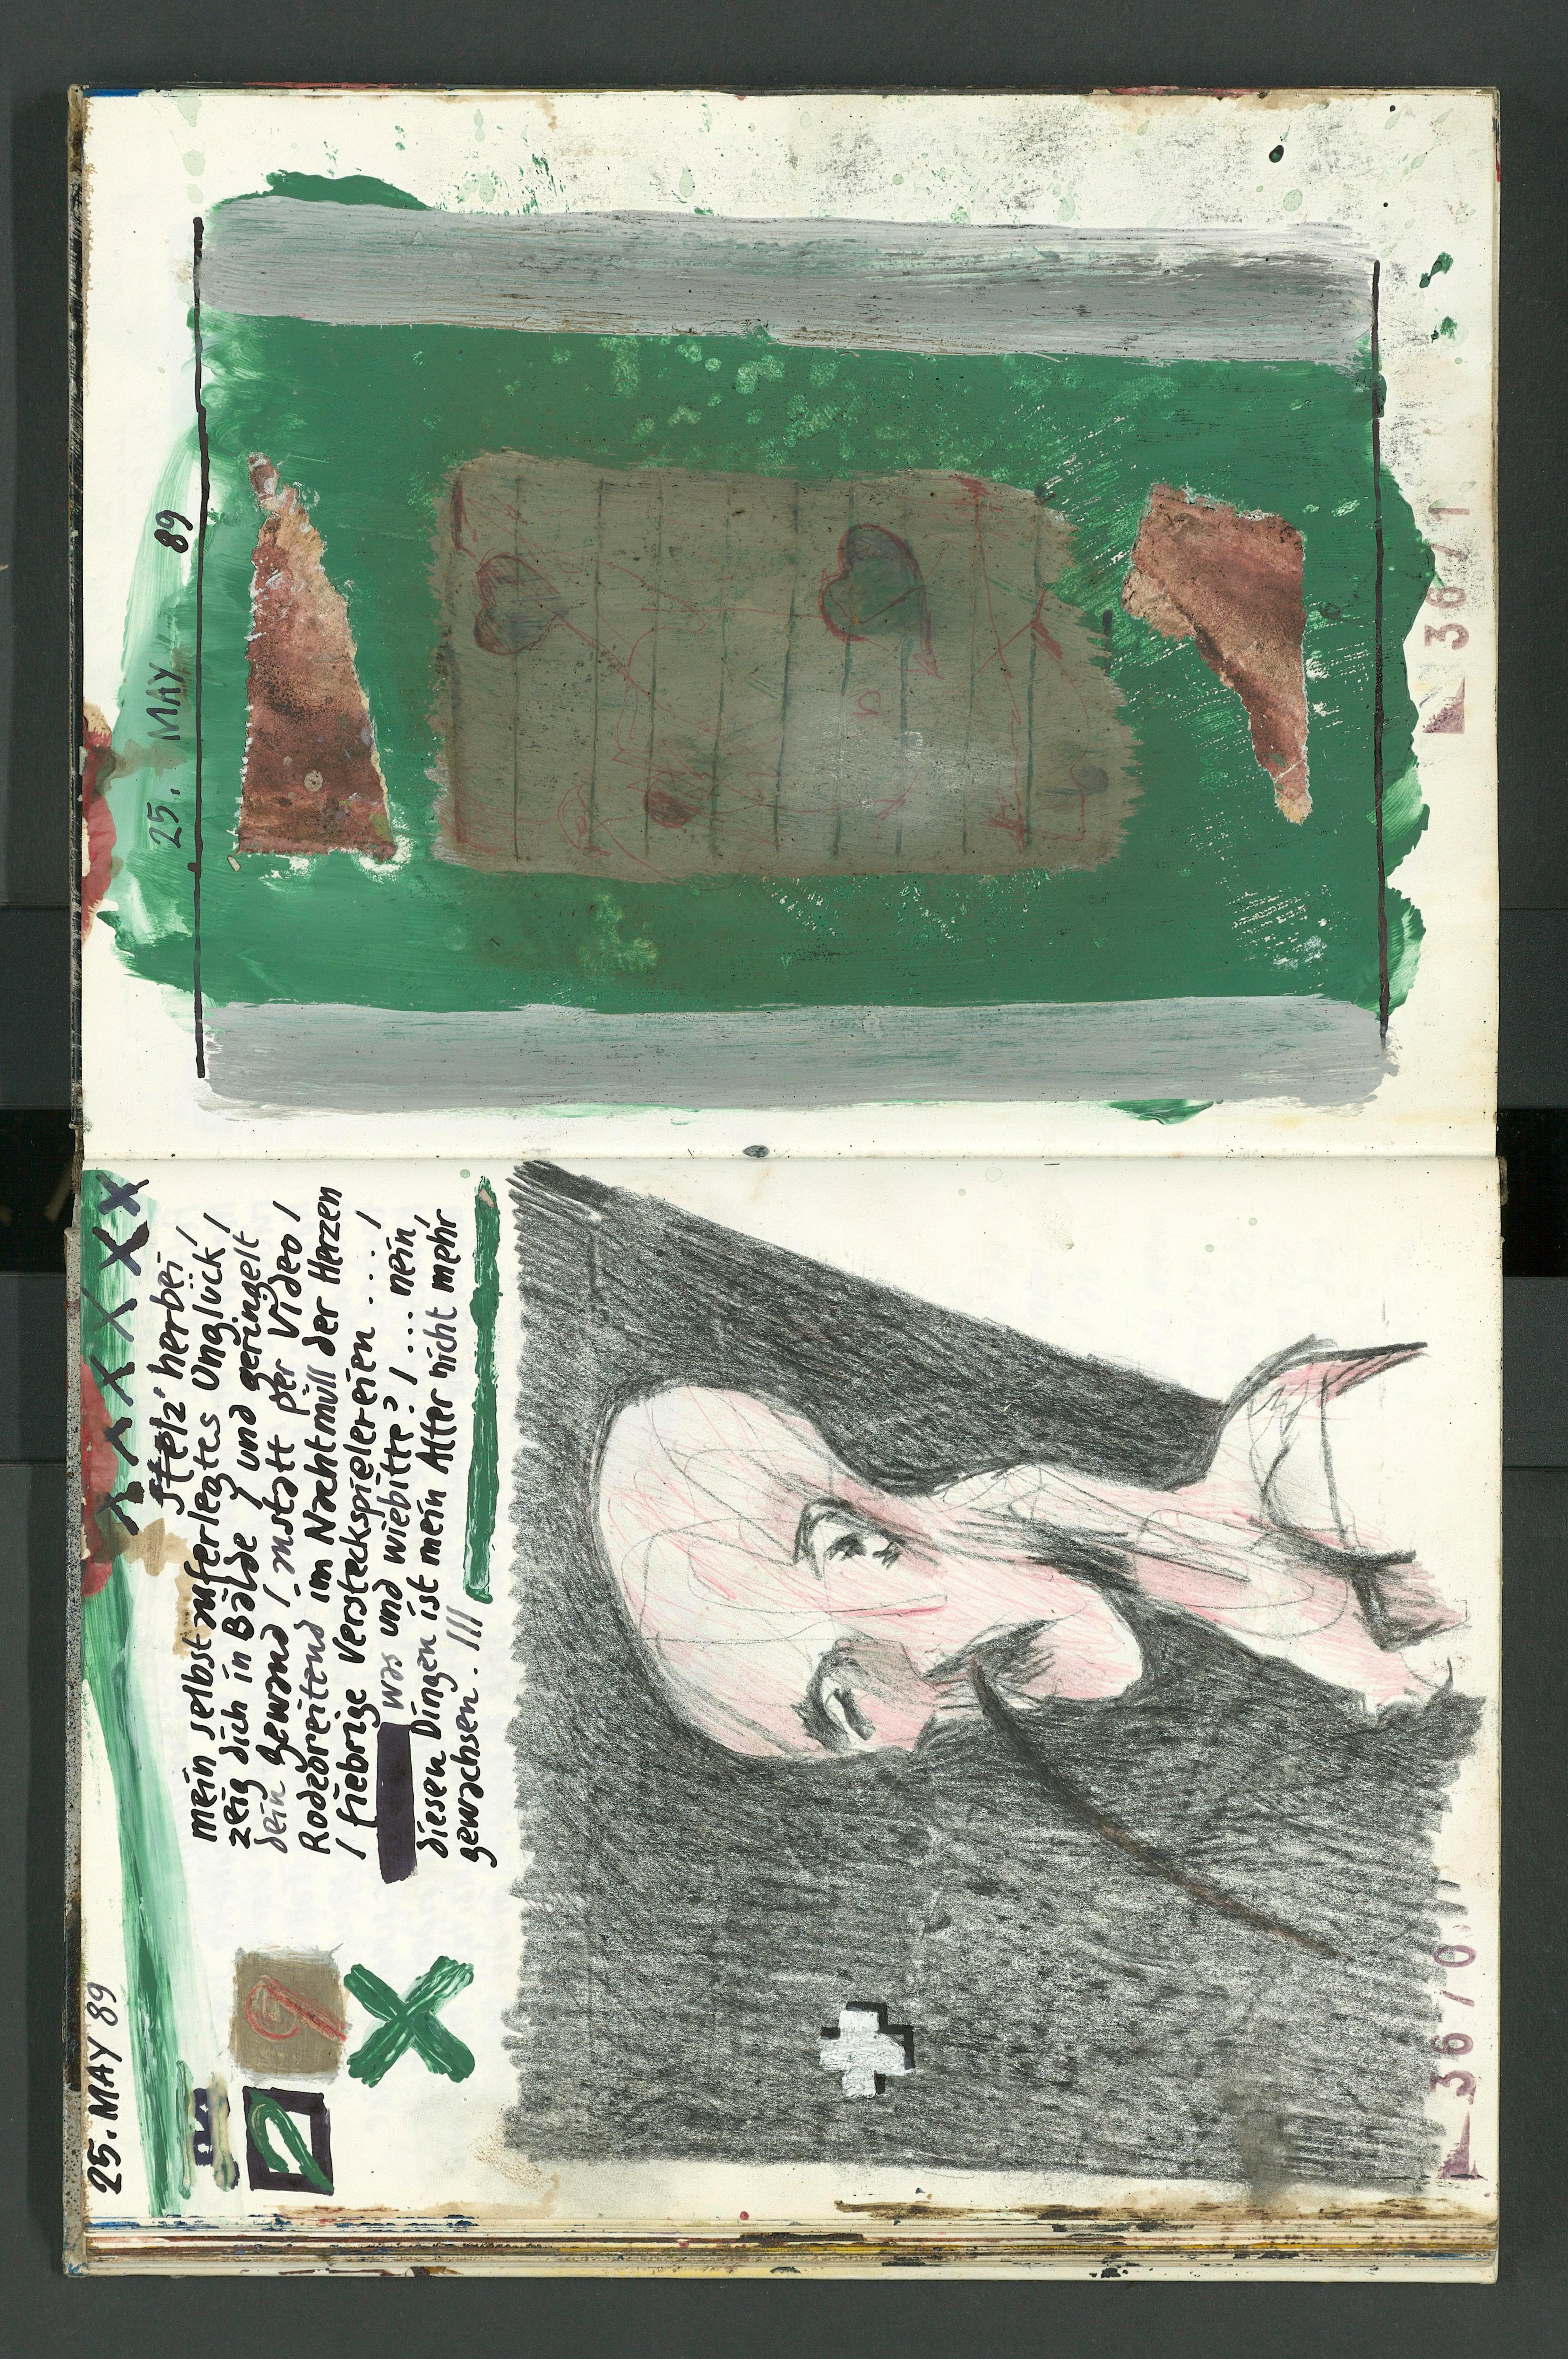 25. MAY 89
X X X X X X
ſtetz' herbei
mein selbstauferlegtes Unglück /
zeig dich in Bälde / und geringelt
dein Gewand / anstatt per Video /
Rodebreitend im Nachtmüll der Herzen
/ fiebrige Versteckspielereien .... /
was und wiebitte? / ... nein,
diesen Dingen ist mein Alter nicht mehr
gewachsen. ///
36/0
25. MAY 89
36/1